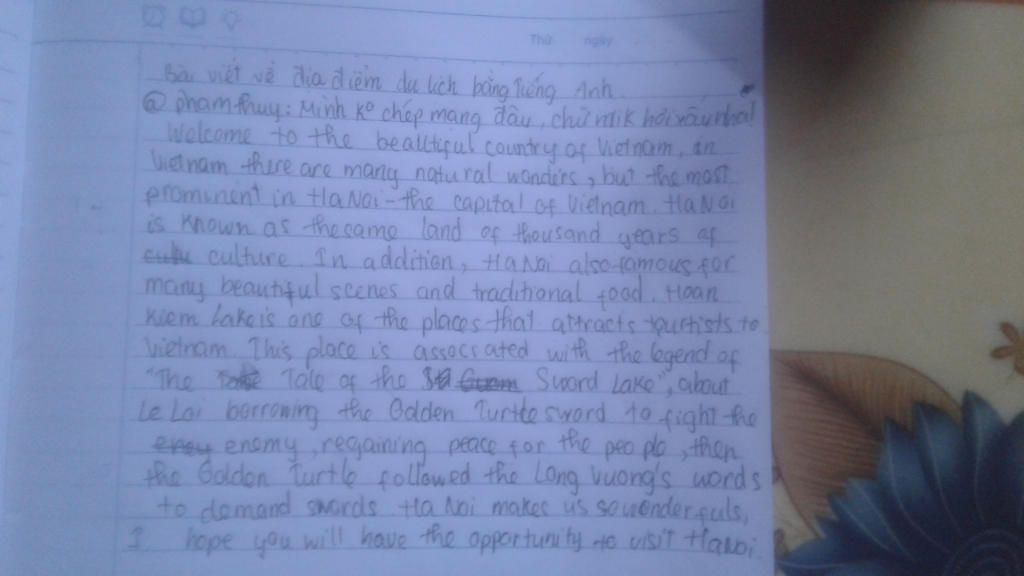 Thứ ngày
Bài viết về địa điểm du lịch bằng Tiếng Anh
@ phamthuy: Mình ko chép mạng đâu, chữ mik hơi xấu nha!
Welcome to the bealltiful country of Vietnam, in
Vietnam there are many natural wonders, but the most
prominent in HaNoi - the capital of Vietnam. HaNoi
is known as the same land of thousand years of
culture. In addition, HaNoi also famous for
many beautiful scenes and traditional food. Hoan
Kiem Lake is one of the places that attracts tourtists to
Vietnam. This place is assocsated with the legend of
"The Tale of the Sword Lake", about
Le Loi borrowing the Golden Turtle sword to fight the
enemy, regaining peace for the people, then
the Golden Turtle followed the Long Vuong's words
to demand swords. Ha Noi makes us so wonderfuls,
I hope you will have the opportunity to visit HaNoi.